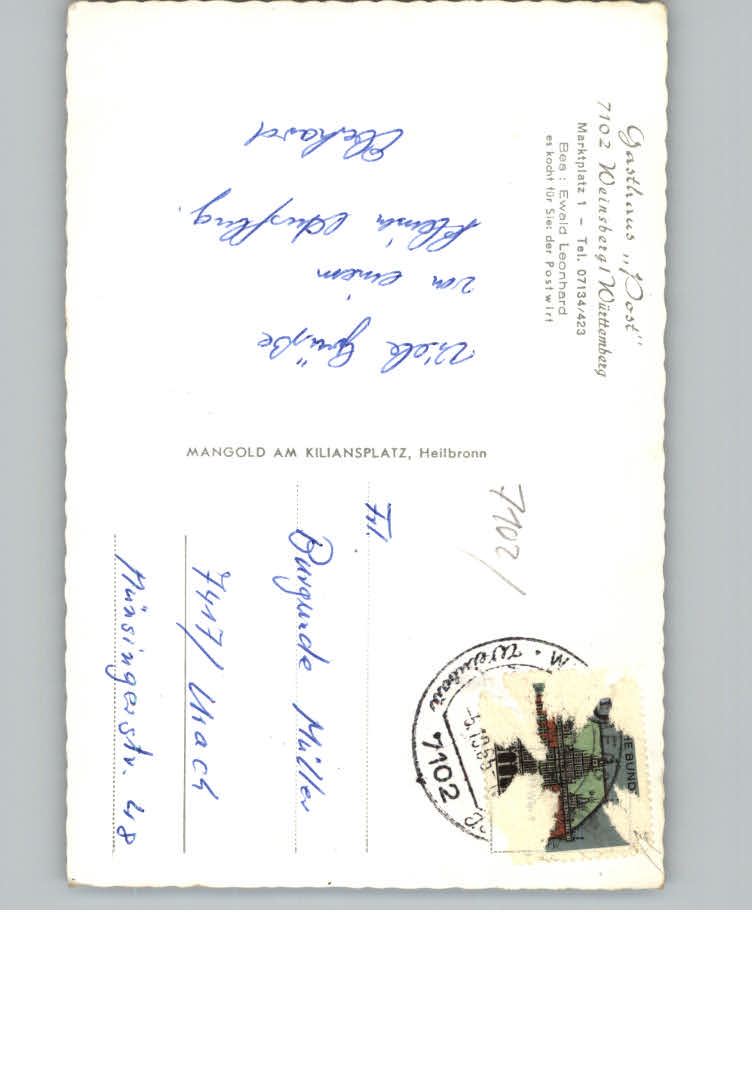 Gasthaus „Post"
7102 Weinsberg/Württemberg
Marktplatz 1 – Tel. 07134/423
Bes : Ewald Leonhard
es kocht für Sie: der Postwirt
Viele Grüße
von einem
kleinen Ausflug.
Eberhard
MANGOLD AM KILIANSPLATZ, Heilbronn
7102/
Frl.
Burgunde Müller
7417/ Urach
Münsingerstr. 48
7102
E BUND